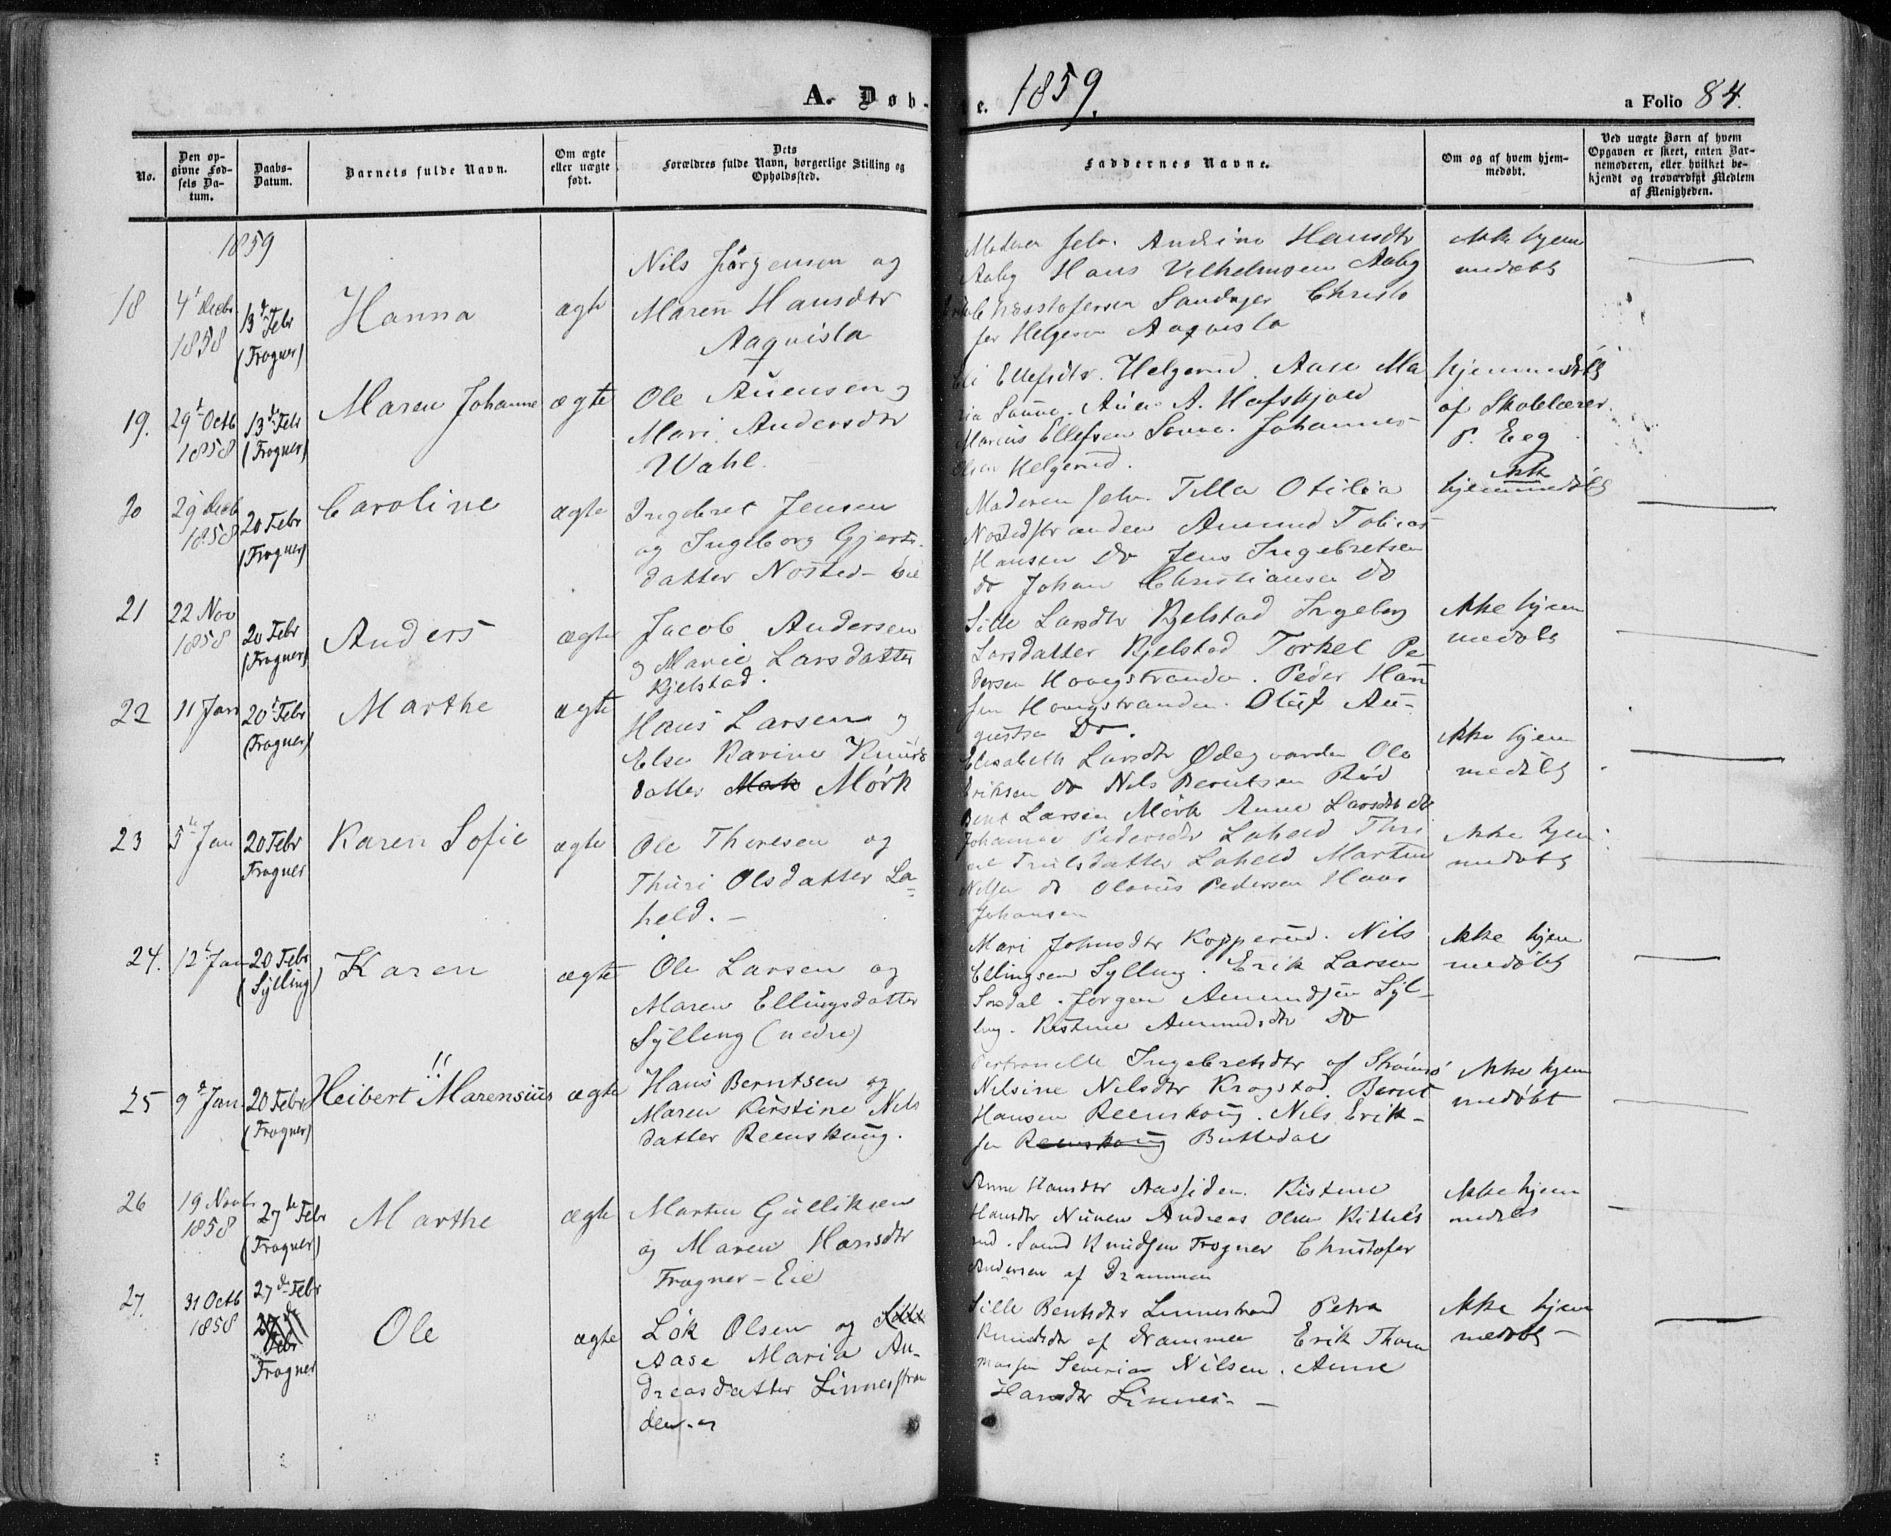 A. Døbte. 1859. a Folio 84.
No.
Den opgivne Fødsels Datum.
Daabs-Datum.
Barnets fulde Navn.
Om ægte eller uægte født.
Dets Forældres fulde Navn, borgerlige Stilling og Opholdssted.
Faddernes Navne.
Om og af hvem hjemmedøbt.
Ved uægte Børn af hvem Opgaven er skeet, enten Barnemoderen, eller hvilket bekjendt og troværdigt Medlem af Menigheden.
1859
18 4de Decbr 1858 13de Febr (Frogner) Hanna ægte
Nils Jörgensen og
Maren Hansdtr
Aaqvisla
Moderen selv. Andrine Hansdtr
Aaby Hans Vilhelmsen Aaby
Christofersen Sandager Christo
fer Helgesen Aaqvisla
ikke hjem
medøbt
19. 29de Octb 1858 13de Febr (Frogner) Maren Johanne ægte
Ole Auensen og
Mari Andersdtr
Wahl.
Ellefsdtr. Helgerud. Aase Ma
ria Sonne. Auen A. Hafskjold
Marius Ellefsen Sonne. Johannes
Olsen Helgerud.
hjemmedøbt
af Skolelærer
P. Eeg
20 29 Decb 1858 20 Febr (Frogner) Caroline ægte
Ingebret Jensen
og Ingeborg Gjerts-
datter Nøsted-Eie
Moderen selv. Tilla Otilia
Nøstedstranden Amund Tobias
Hansen Do Jens Ingebretsen
do Johan Christiansen Do
ikke
hjemmedøbt
21 22 Nov 1858 20 Febr (Frogner) Anders ægte
Jacob Andersen
og Marie Larsdatter
Kjelstad.
Sille Larsdtr Kjelstad Ingeborg
Larsdatter Kjelstad Torkel Pe
dersen Hovegstranden. Peder Han
sen Hovegstranden. Oluf Au-
gustsen Do.
ikke hjem
medøbt
22 11 Jan 20de Febr (Frogner) Marthe ægte
Hans Larsen og
Else Karine Knuds
datter Mørk
Elisabeth Larsdtr Ødegaarden Ole
Eriksen do Nils Berntsen Röd
Bent Larsen Mørk Anne Larsdtr do
ikke hjem
medøbt
23 5te Jan 20 Febr Frogner Karen Sofie ægte
Ole Theresen og
Thuri Olsdatter La-
held.-
Johanne Pedersdtr Laheld Thri
ne Trulsdatter Laheld Martin
Nilsen do Olavus Pedersen Hans
Johansen
ikke hjem
medøbt
24. 12te Jan 20 Febr (Sylling) Karen ægte
Ole Larsen og
Maren Ellingsdatter
Sylling (nedre)
Mari Johnsdtr Kopperud. Nils
Ellingsen Sylling. Erik Larsen
Sørsdal. Jørgen Amundsen Syl-
ling. Kistine Amundsdtr Do
ikke hjem
medøbt
25 9de Jan 20 Febr (Frogner) Heibert !! Marensius ægte
Hans Berntsen og
Maren Kirstine Nils
datter Reenskoug.
Pertronelle Ingebretsdtr af Strömsø
Nilsine Nilsdtr Krogstad. Bernt
Hansen Reenskoug. Nils Erik-
sen Reenskoug Buttedal
ikke hjem
medøbt
26 19 Novbr 1858 27de Febr (Frogner) Marthe ægte
Martin Gulliksen
og Maren Hansdtr
Frogner-Eie
Anne Hansdtr Aassiden. Kistine
Hansdtr Nuven Andreas Olsen Kittels
rud. Svend Knudsen Frogner Christofer
Andersen af Drammen
ikke hjem
medøbt
27. 31 Octb 1858 27de Febr Frogner Ole ægte
Løk Olsen og
Aase Maria An-
dreasdatter Linnesstran
den.
Sille Bentsdtr Linnestrand Petra
Knudsdtr af Drammen Erik Thom
massen Severin Nilsen. Anne
Hansdtr Linnes.-
ikke hjem
medøbt-